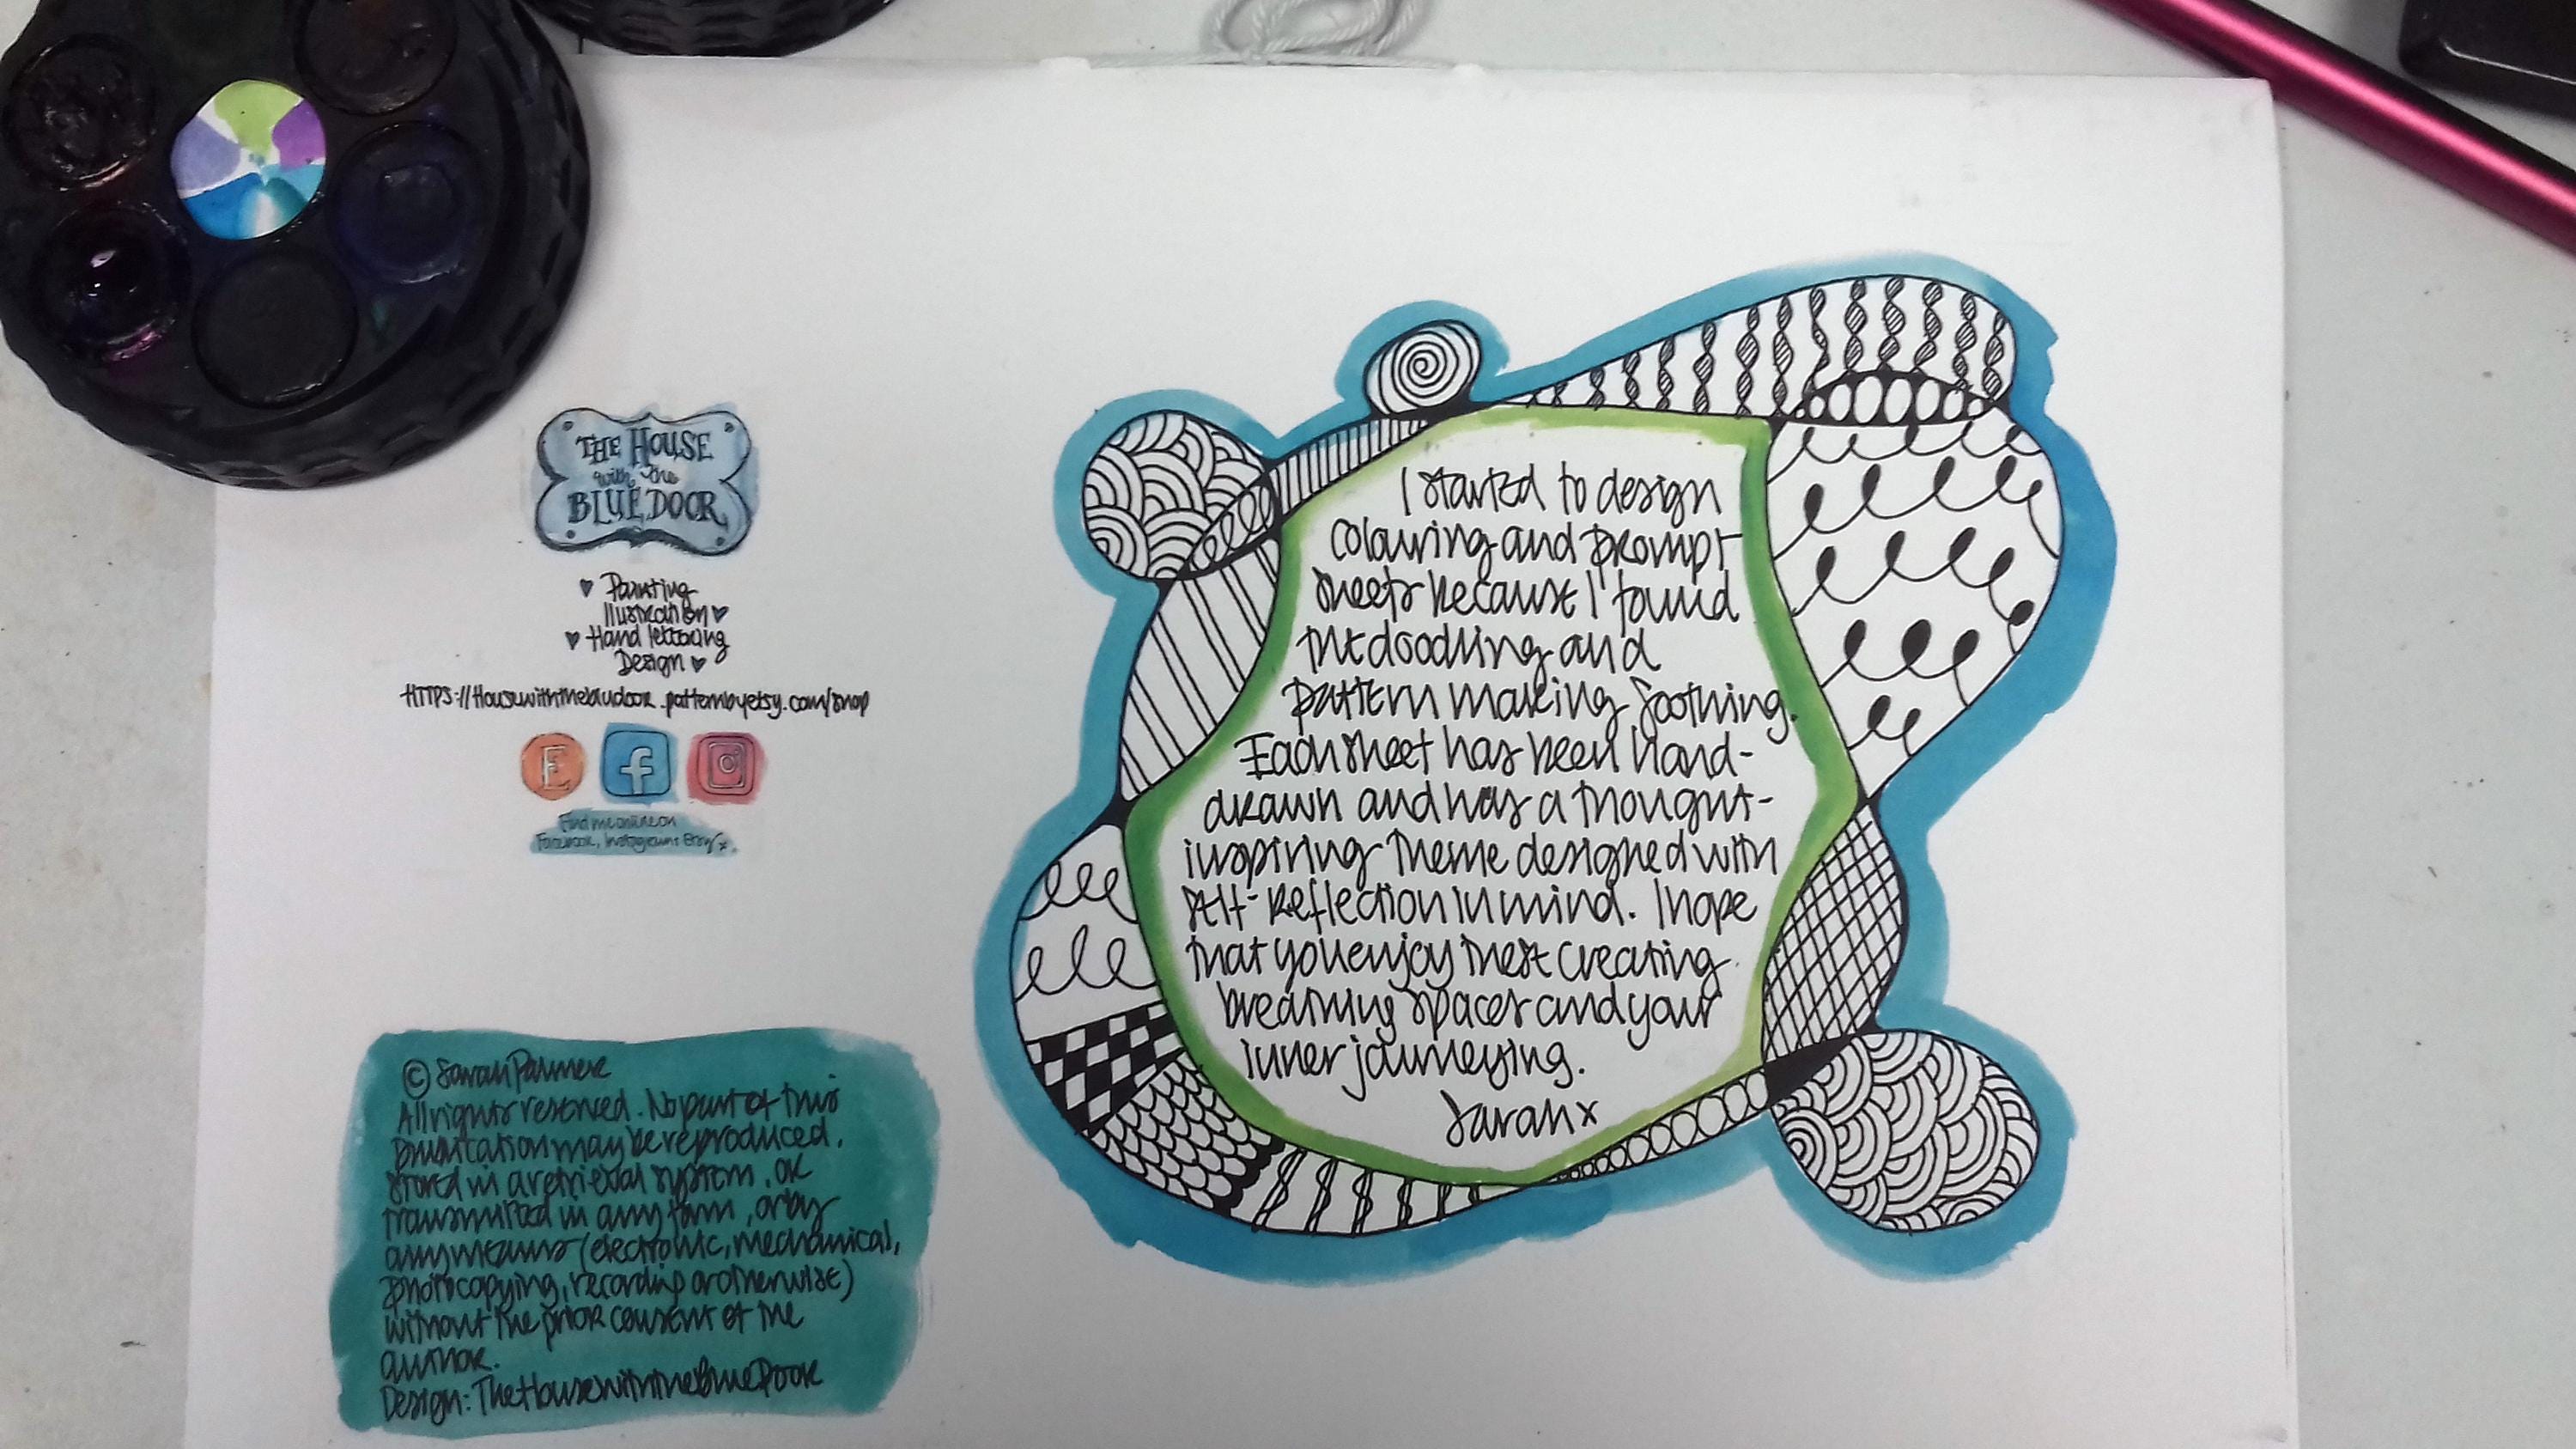 THE HOUSE
with the
BLUE DOOR
Painting
Illustration
Hand lettering
Design
HTTPS://Housewiththebludoor.patternbyetsy.com/shop
E
f
Find me online on
Facebook, Instagram & Etsy x.
© Sarah Palmer
All rights reserved. No part of this
publication may be reproduced,
stored in a retrieval system, or
transmitted in any form, or by
any means (electronic, mechanical,
photocopying, recording or otherwise)
without the prior consent of the
author.
Design: TheHousewiththeBlueDoor
I started to design
colouring and prompt
sheets because I found
the doodling and
pattern making soothing.
Each sheet has been hand-
drawn and has a thought-
inspiring theme designed with
self-reflection in mind. I hope
that you enjoy these creating
breathing spaces and your
inner journeying.
Sarah x